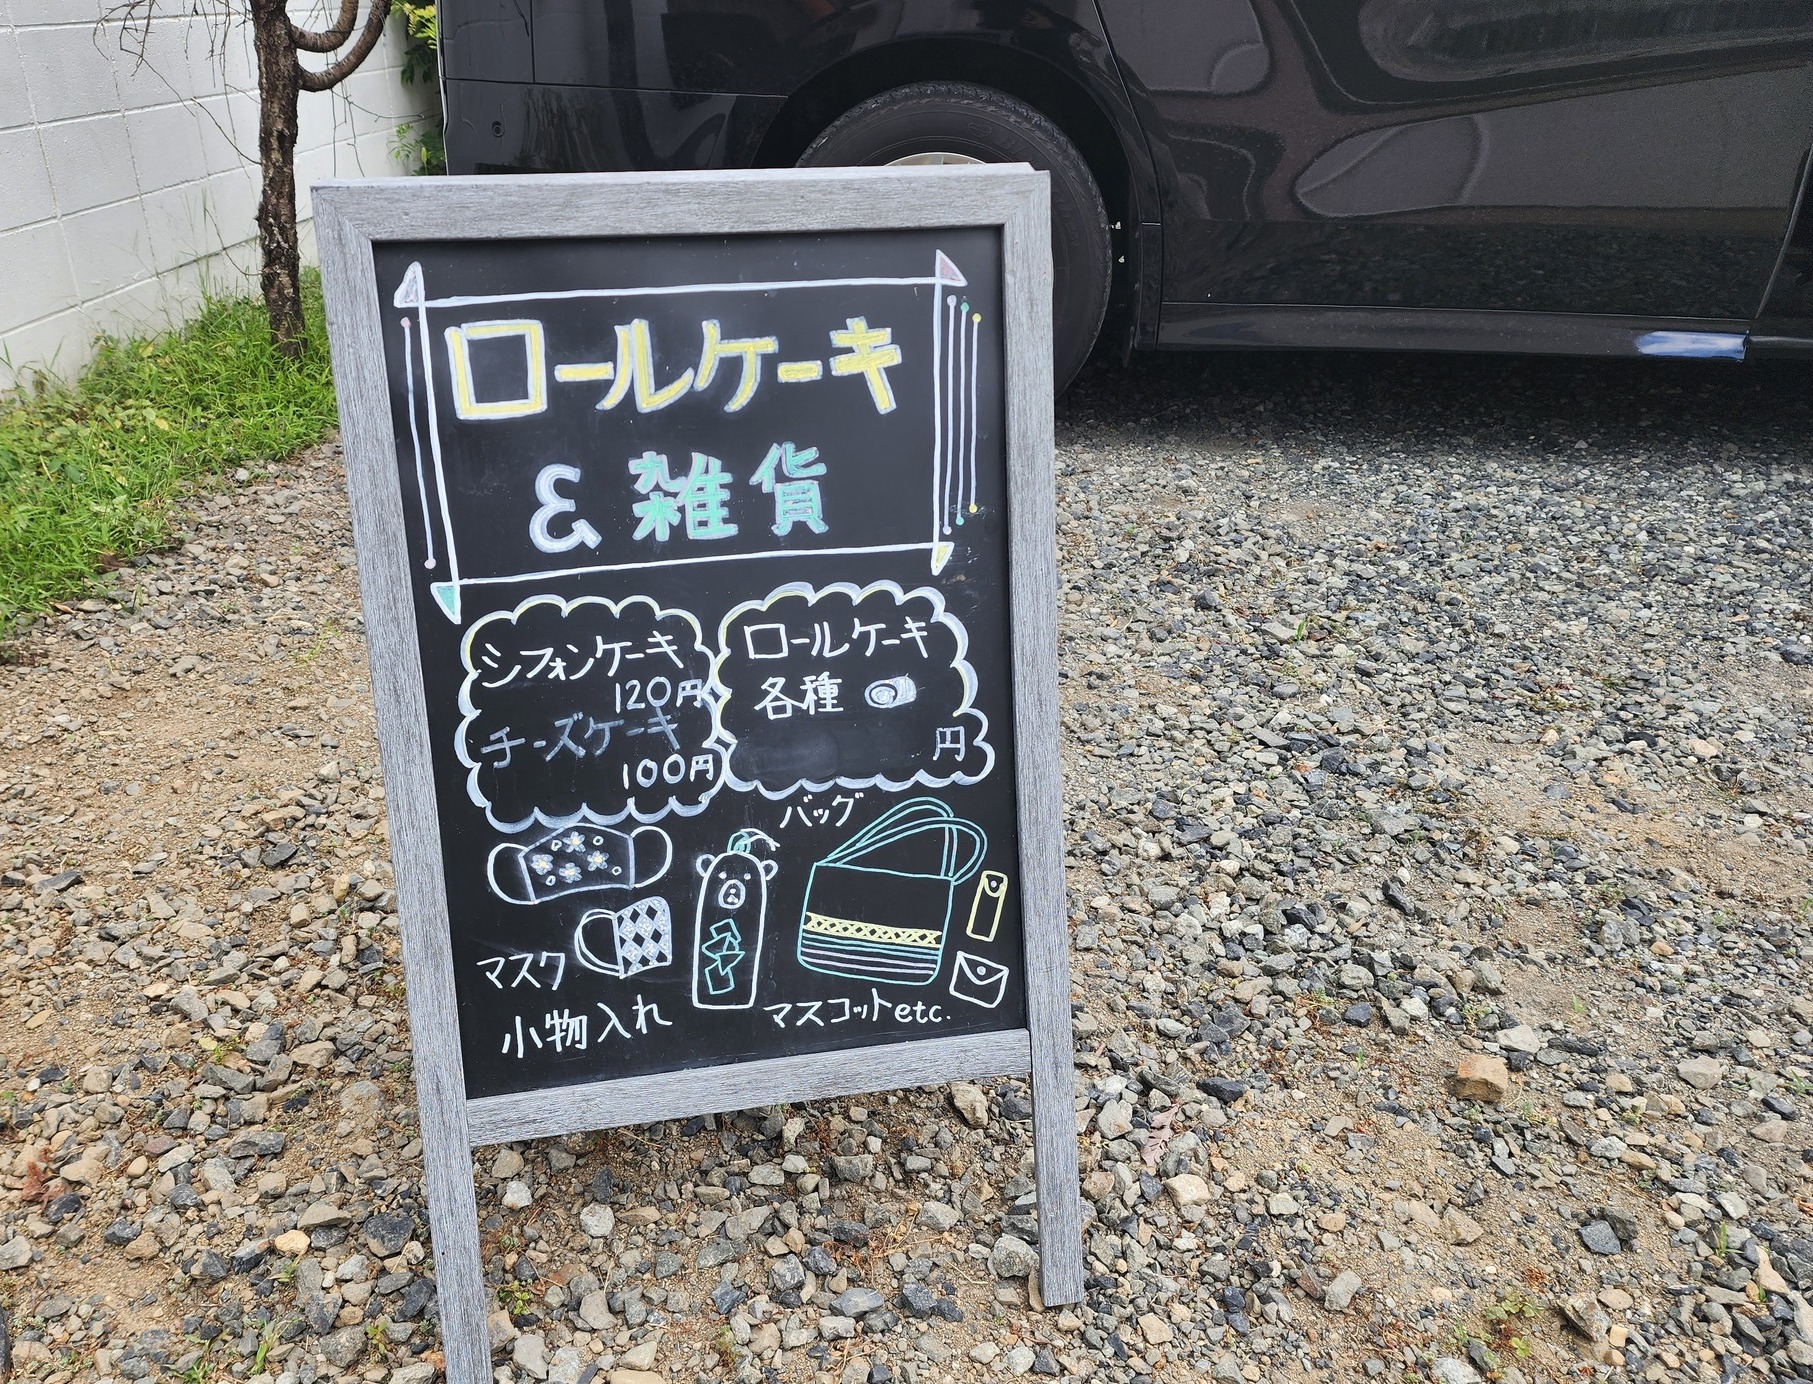 ロールケーキ
& 雑貨
シフォンケーキ
120円
チーズケーキ
100円
ロールケーキ
各種
円
バッグ
マスク
小物入れ
マスコットetc.